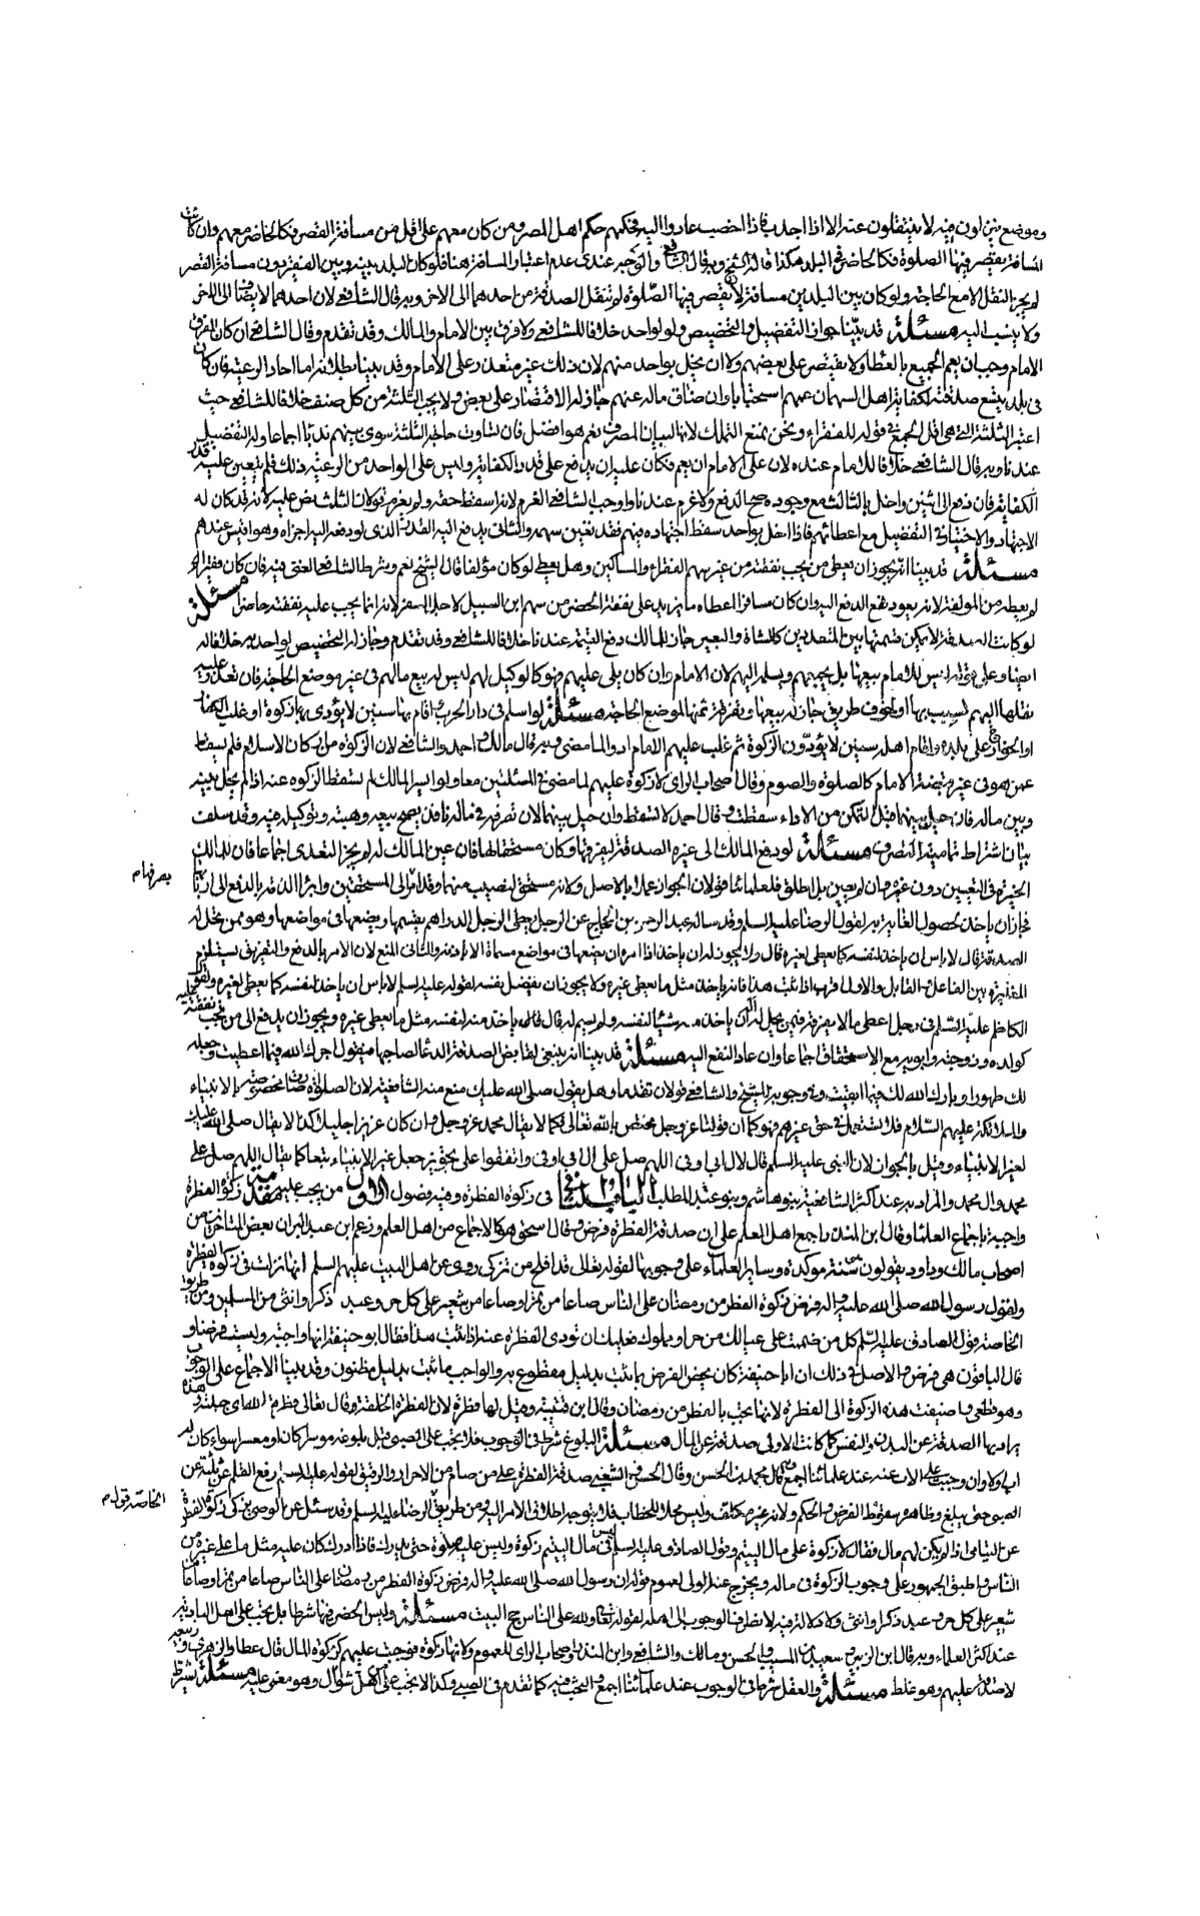 وموضع ينزلون فيه لا ينتقلون عنه الا اذا اجدب فاذا اخصب عادوا اليه فحكمهم حكم اهل المصر ومن كان معهم على اقل من مسافة القصر فكالحاضر معهم وان كانت
المسافة يقصر فيها الصلوة فكالحاضر في البلد هكذا قاله الشيخ وبه قال الشافعي والوجه عندي عدم اعتبار المسافة هنا فلو كان البلد بينه وبين المنفردون مسافة القصر
لم يجز النقل الا مع الحاجة ولو كان بين البلدين مسافة لا يقصر فيها الصلوة لم تنقل الصدقة من احدهما الى الاخر وبه قال الشافعي لان احدهما لا يضاف الى الاخر
ولا ينسب اليه مسئلة قد بينا جواز التفضيل والتخصيص ولو لواحد خلافا للشافعي ولا فرق بين الامام والمالك وقد تقدم وقال الشافعي ان كان المفرق
الامام وجب ان يعم الجميع بالعطاء ولا يقتصر على بعضهم ولا ان يخل بواحد منهم لان ذلك غير متعذر على الامام وقد بينا بطلانه اما احاد الرعية فان كان
في بلد يتسع صدقته لكفاية اهل السهمان عمهم استحبابا وان ضاق ماله عنهم جاز له الاقتصار على بعض ولا يجب الثلثة من كل صنف خلافا للشافعي حيث
اعتبر الثلثة التي هي اقل الجمع في قوله للفقراء ونحن نمنع التملك لانها لبيان المصرف نعم هو افضل فان تساوت حاجة الثلثة سوى بينهم ندبا اجماعا وله التفضيل
عندنا وبه قال الشافعي خلافا للامام عنده لان على الامام ان يعم فكان عليه ان يدفع على قدر الكفاية وليس على الواحد من الرعية ذلك فلم يتعين عليه قدر
الكفاية فان دفع الى اثنين واخل بالثالث مع وجوده صح الدفع ولا غرم عندنا واوجب الشافعي الغرم لانه اسقط حقه ولم يغرم قولان الثلث نص عليه لانه قد كان له
الاجتهاد والاختيار في التفضيل مع اعطائهم فاذا اخل بواحد سقط اجتهاده فيهم فقد تعين سهمه والثاني يدفع اليه القدر الذي لو دفعه اليه اجزاه وهو اقيس عندهم
مسئلة قد بينا انه يجوز ان يعطى من يجب نفقته من غير سهم الفقراء والمساكين وهل يعطى لو كان مؤلفا قال الشيخ نعم ويشرط الشافعي الغنى فيه فان كان فقيرا
لم يعطه من المؤلفة لانه يعود نفع الدفع اليه وان كان مسافرا اعطاه ما يزيد على نفقة الحضر من سهم ابن السبيل لاجل السفر لانه انما يجب عليه نفقته حاضرا مسئلة
لو كانت الصدقة لا يمكن قسمتها بين المتعددين كالشاة والبعير جاز للمالك دفع القيمة عندنا خلافا للشافعي وقد تقدم وجاز له التخصيص لواحد به خلافا له
ايضا وعلى قوله ليس للامام بيعها بل يجمعهم ويسلمه اليهم لان الامام وان كان يلي عليهم فهو كالوكيل لهم ليس له بيع مالهم في غير موضع الحاجة فان تعذر عليه
نقلها اليهم لسبب بها او لخوف طريق جاز له بيعها وتفرقة ثمنها لموضع الحاجة مسئلة لو اسلم في دار الحرب واقام بها سنين لا يؤدي بها زكوة او غلب
او الخوارج على بلده واقام اهله سنين لا يؤدون الزكوة ثم غلب عليهم الامام ادوا لما مضى وبه قال مالك واحمد والشافعي لان الزكوة من اركان الاسلام فلم يسقط
عمن هو في غير قبضة الامام كالصلوة والصوم وقال اصحاب الراي لا زكوة عليهم لما مضى في المسئلتين معا ولو اسر المالك لم تسقط الزكوة عنه اذا لم يحل بينه
وبين ماله فان حيل بينهما قبل التمكن من الاداء سقطت وقال احمد لا تسقط وان حيل بينهما لان تصرفه في ماله نافذ يصح بيعه وهبته وتوكيله فيه وقد سلفت
بيان اشتراط تمامية التصرف مسئلة لو دفع المالك الى غيره الصدقة ليفرقها وكان مستحقا لها فان عين المالك له لم يجز التعدي اجماعا فان للمالك
الخيرة في التعيين دون غيره وان لم يعين بل اطلق فلعلمائنا قولان الجواز عملا بالاصل ولانه مستحق لنصيب منها وقد امر الى المستحقين وابرا الذمة بالدفع الى اربابها
فجاز ان ياخذ لحصول الغاية به لقول الرضا عليه السلم وقد ساله عبد الرحمن بن الحجاج عن الرجل يعطي الرجل الدراهم يقسمها ويضعها في مواضعها وهو ممن يحل له
الصدقة قال لا باس ان ياخذ لنفسه كما يعطى لغيره قال ولا يجوز له ان ياخذ اذا امره ان يضعها في مواضع مسماة الا باذنه والثاني المنع لان الامر بالدفع والتفريق يستلزم
المغايرة بين الفاعل والقابل والاول اقرب اذا ثبت هذا فانه ياخذ مثل ما يعطى غيره ولا يجوز ان يفضل نفسه لقوله عليه السلم لا باس ان ياخذ لنفسه كما يعطى لغيره ولقول
الكاظم عليه السلم في رجل اعطى مالا يفرقه فيمن يحل له اله ان ياخذ منه شيئا لنفسه ولم يسم له قال ياخذ منه لنفسه مثل ما يعطى غيره ويجوز ان يدفع الى من يجب عليه نفقته
كولده وزوجته وابويه مع الاستحقاق اجماعا وان عاد النفع اليه مسئلة قد بينا انه ينبغي لقابض الصدقة الدعا لصاحبها فيقول اجرك الله فيما اعطيت وجعله
لك طهورا وبارك الله لك فيما ابقيت وفي وجوبه للشيخ والشافعي قولان تقدما وهل يقول صلى الله عليك منع منه الشافعية لان الصلوة صار مخصوصة بالانبياء
والملائكة عليهم السلام فلا تستعمل في حق غيرهم فهو كما ان قولنا عز وجل مختص بالله تعالى فكما لا يقال محمد عز وجل وان كان عزيزا جليلا كذا لا يقال صلى الله عليك
لغير الانبياء وقيل بالجواز لان النبي عليه السلم قال لال ابي اوفى اللهم صل على ال ابي اوفى واتفقوا على تجويز جعل غير الانبياء تبعا كما يقال اللهم صل على
محمد وال محمد والمراد به عند اكثر الشافعية بنو هاشم وبنو عبد المطلب الباب الثاني في زكوة الفطرة وفيه فصول الاول من يجب عليه مقدمة زكوة الفطرة
واجبة باجماع العلماء وقال ابن المنذر واجمع اهل العلم على ان صدقة الفطرة فرض وقال اسحق هو كالاجماع من اهل العلم وزعم ابن عبد البر ان بعض المتاخرين من
اصحاب مالك وداود يقولون هي سنة موكدة وساير العلماء على وجوبها لقوله تعالى قد افلح من تزكى روي عن اهل البيت عليهم السلم انها نزلت في زكوة الفطرة
ولقول رسول الله صلى الله عليه واله فرض زكوة الفطر من رمضان على الناس صاعا من تمر او صاعا من شعير على كل حر وعبد ذكر او انثى من المسلمين ومن طريق
الخاصة قول الصادق عليه السلم كل من ضممت على عيالك من حر او مملوك فعليك ان تودي الفطرة عنه اذا ثبت هذا فقال ابو حنيفة انها واجبة وليست فرضا و
قال الباقون هي فرض والاصل في ذلك ان ابا حنيفة كان يخص الفرض بما ثبت بدليل مقطوع به والواجب ما ثبت بدليل مظنون وقد بينا الاجماع على الوجوب
وهو قطعي واضيفت هذه الزكوة الى الفطرة لانها تجب بالفطر من رمضان وقال ابن قتيبة وقيل لها فطرة لان الفطرة الخلقة وقال تعالى فطرة الله اي جبلته وهذه
يراد بها الصدقة عن البدن والنفس كما كانت الاولى صدقة عن المال مسئلة البلوغ شرط في الوجوب فلا تجب على الصبي قبل بلوغه موسرا كان او معسرا سواء كان له
اب اولا وان وجبت على الاب عنه عند علمائنا اجمع وبه قال محمد بن الحسن وقال الحسن والشعبي صدقة الفطرة على من صام من الاحرار والرقيق لقوله عليه السلم رفع القلم عن ثلثة عن
الصبي حتى يبلغ وظاهره سقوط الفرض والحكم ولانه غير مكلف وليس محلا للخطاب فلا يتوجه اطلاق الامر اليه ومن طريق الرضا عليه السلم وقد سئل عن الوصي يزكي زكوة الفطرة
عن اليتامى اذا لم يكن لهم مال فقال لا زكوة على مال اليتيم وقول الصادق عليه السلم ليس في مال اليتيم زكوة وليس عليه صلوة حتى يدرك فاذا ادرك كان عليه مثل ما على غيره من
الناس واطبق الجمهور على وجوب الزكوة في ماله ويخرج عنه الولي لعموم قوله ان رسول الله صلى الله عليه واله فرض زكوة الفطر من رمضان على الناس صاعا من تمر او صاعا من
شعير على كل حر وعبد ذكر او انثى ولا دلالة فيه لانصراف الوجوب الى اهله لقوله تعالى ولله على الناس حج البيت مسئلة وليس الحضر فيها شرطا بل تجب على اهل البادية
عند اكثر العلماء وبه قال ابن الزبير وسعيد بن المسيب والحسن ومالك والشافعي وابن المنذر واصحاب الراي للعموم ولانها زكوة فوجبت عليهم كزكوة المال قال عطا والزهري وربيعة
لا صدقة عليهم وهو غلط مسئلة والعقل شرط في الوجوب عند علمائنا اجمع والبحث فيه كما تقدم في الصبي وكذا لا تجب على اهل شوال وهو مغمى عليه مسئلة يشترط
بصرفها م
الخاصة قول م